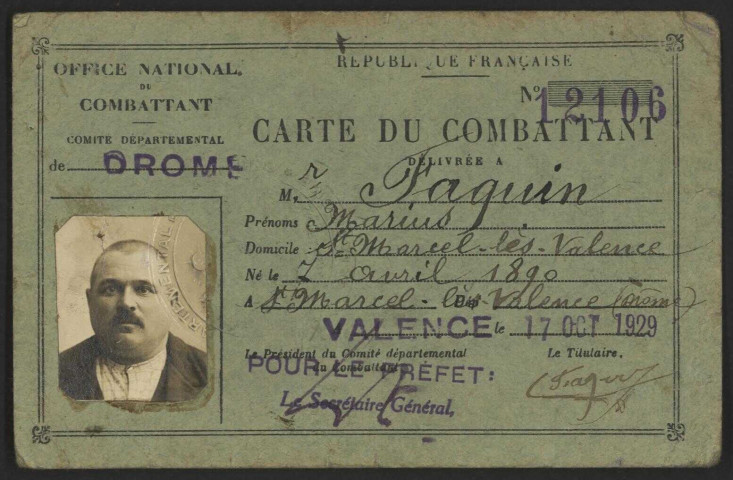 OFFICE NATIONAL
DU
COMBATTANT
COMITÉ DÉPARTEMENTAL
de DROME
RÉPUBLIQUE FRANÇAISE
No 12106
CARTE DU COMBATTANT
DÉLIVRÉE A
M. r Faquin
Prénoms Marius
Domicile St Marcel-lès-Valence
Né le 7 avril 1890
A St Marcel-lès-Valence (Drôme)
VALENCE le 17 OCT 1929
Le Président du Comité départemental
du Combattant
Le Titulaire,
POUR LE PRÉFET:
Le Secrétaire Général,